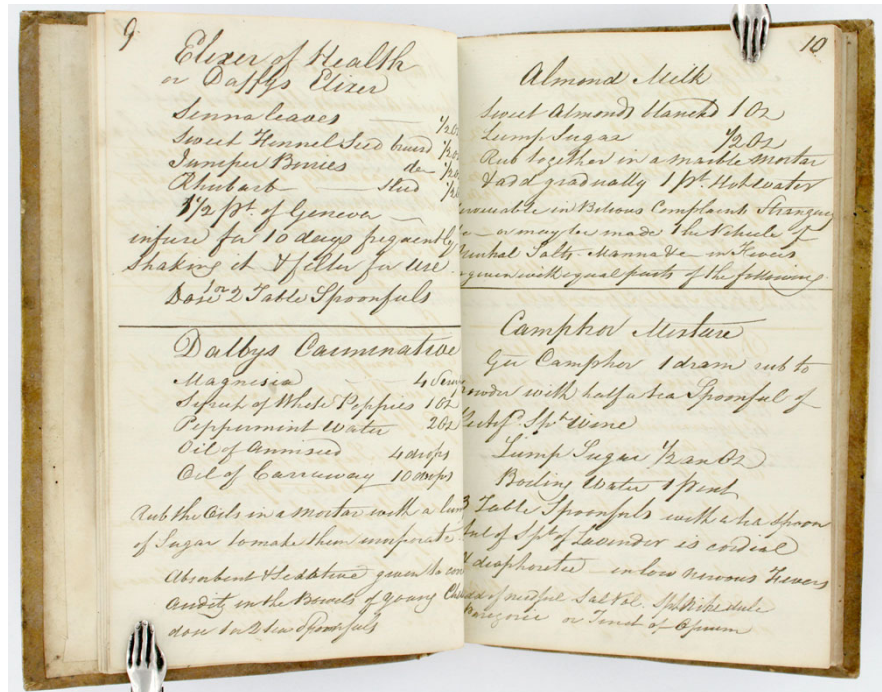 9
Elixer of Health
or Daffys Elixer
Senna leaves — 1/2 Oz
Sweet Fennel Seed bruisd 1/2 Oz
Juniper Berries do 1/2
Rhubarb — Slicd 1/2
1 1/2 pt. of Geneva
infuse for 10 days frequently
shaking it & filter for use
Dose 1 or 2 Table Spoonfuls
Dalbys Carminative
Magnesia 4
Syrup of White Poppies 1 Oz
Peppermint Water 2 Oz
Oil of Anniseed 4 drops
Oil of Carraway 10 drops
Rub the Oils in a mortar with a
of Sugar to make them
Absorbent & Sedative given to
acidity in the Bowels of young
dose 1 or 2 tea Spoonfuls
10
Almond Milk
Sweet Almonds blanched 1 Oz
Lump Sugar 1/2 Oz
Rub together in a marble mortar
& add gradually 1 pt. Hot water
in Bilious Complaints Strangury
or may be made the Vehicle of
Salts - Manna &c - in Fevers
given with equal parts of the following
Camphor Mixture
Camphor 1 dram rub to
with half a tea Spoonful of
Spt Wine
Lump Sugar 1/2 an Oz
Boiling Water 1 Pint
3 Table Spoonfuls with a tea spoon
of Spt of Lavender is cordial
& diaphoretic - in low nervous Fevers
add if needful Sal Vol.
Paregoric or Tinct of Opium